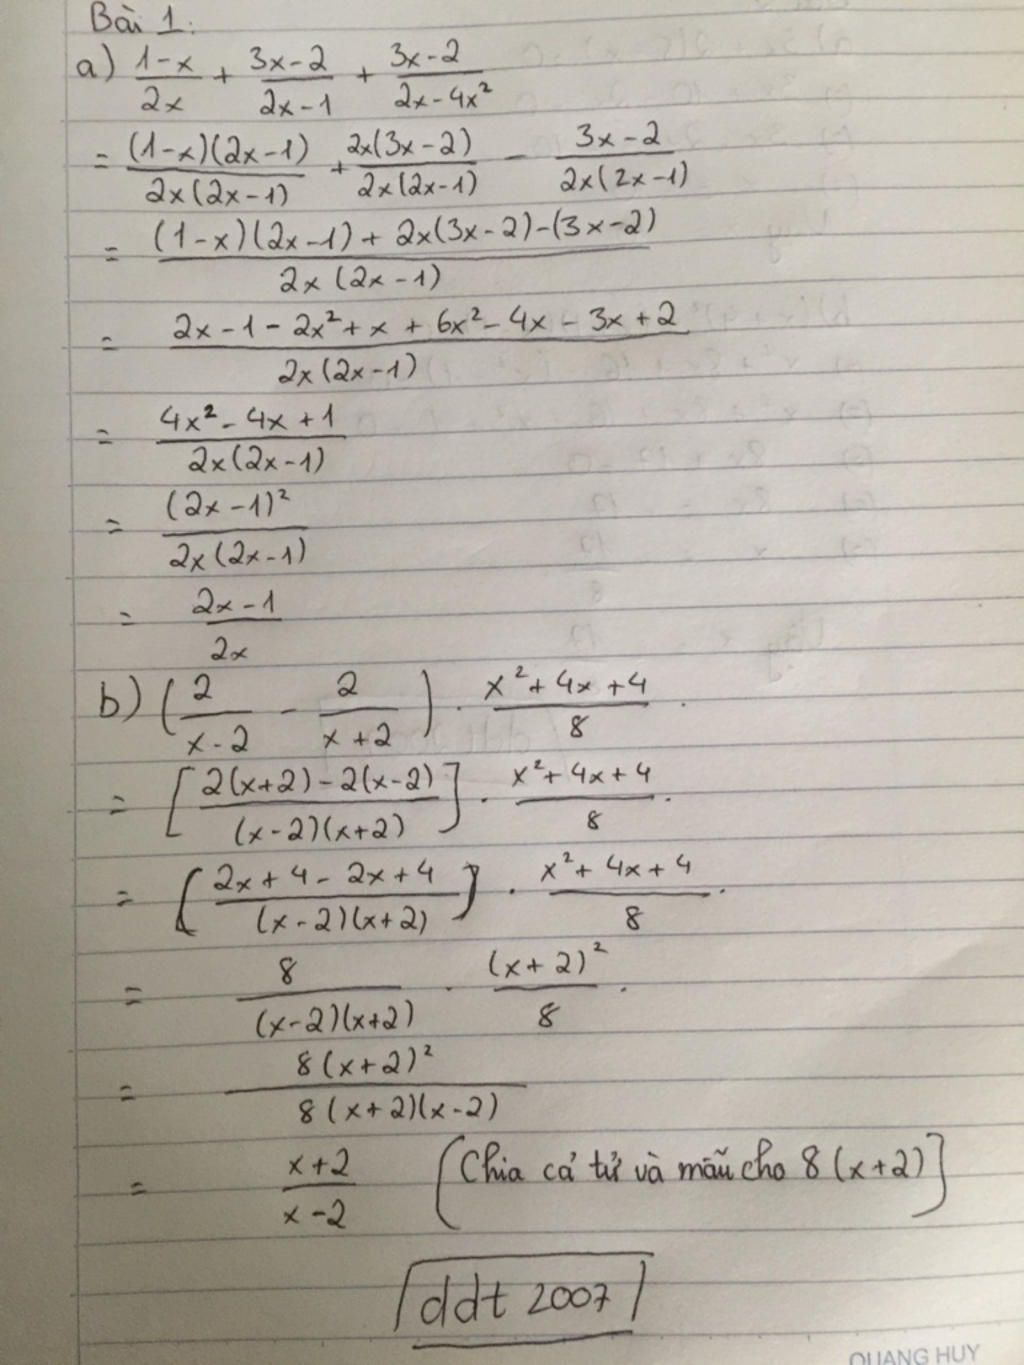 Bài 1:
a) (1-x)/(2x) + (3x-2)/(2x-1) + (3x-2)/(2x-4x²)
= ((1-x)(2x-1))/(2x(2x-1)) + (2x(3x-2))/(2x(2x-1)) - (3x-2)/(2x(2x-1))
= ((1-x)(2x-1) + 2x(3x-2)-(3x-2))/(2x(2x-1))
= (2x-1-2x²+x+6x²-4x-3x+2)/(2x(2x-1))
= (4x²-4x+1)/(2x(2x-1))
= (2x-1)²/(2x(2x-1))
= (2x-1)/(2x)
b) (2/(x-2) - 2/(x+2)) . (x²+4x+4)/8
= [(2(x+2)-2(x-2))/((x-2)(x+2))] . (x²+4x+4)/8.
= [(2x+4-2x+4)/((x-2)(x+2))] . (x²+4x+4)/8.
= 8/((x-2)(x+2)) . (x+2)²/8.
= 8(x+2)²/(8(x+2)(x-2))
= (x+2)/(x-2) [Chia cả tử và mẫu cho 8(x+2)]
ddt 2007
QUANG HUY